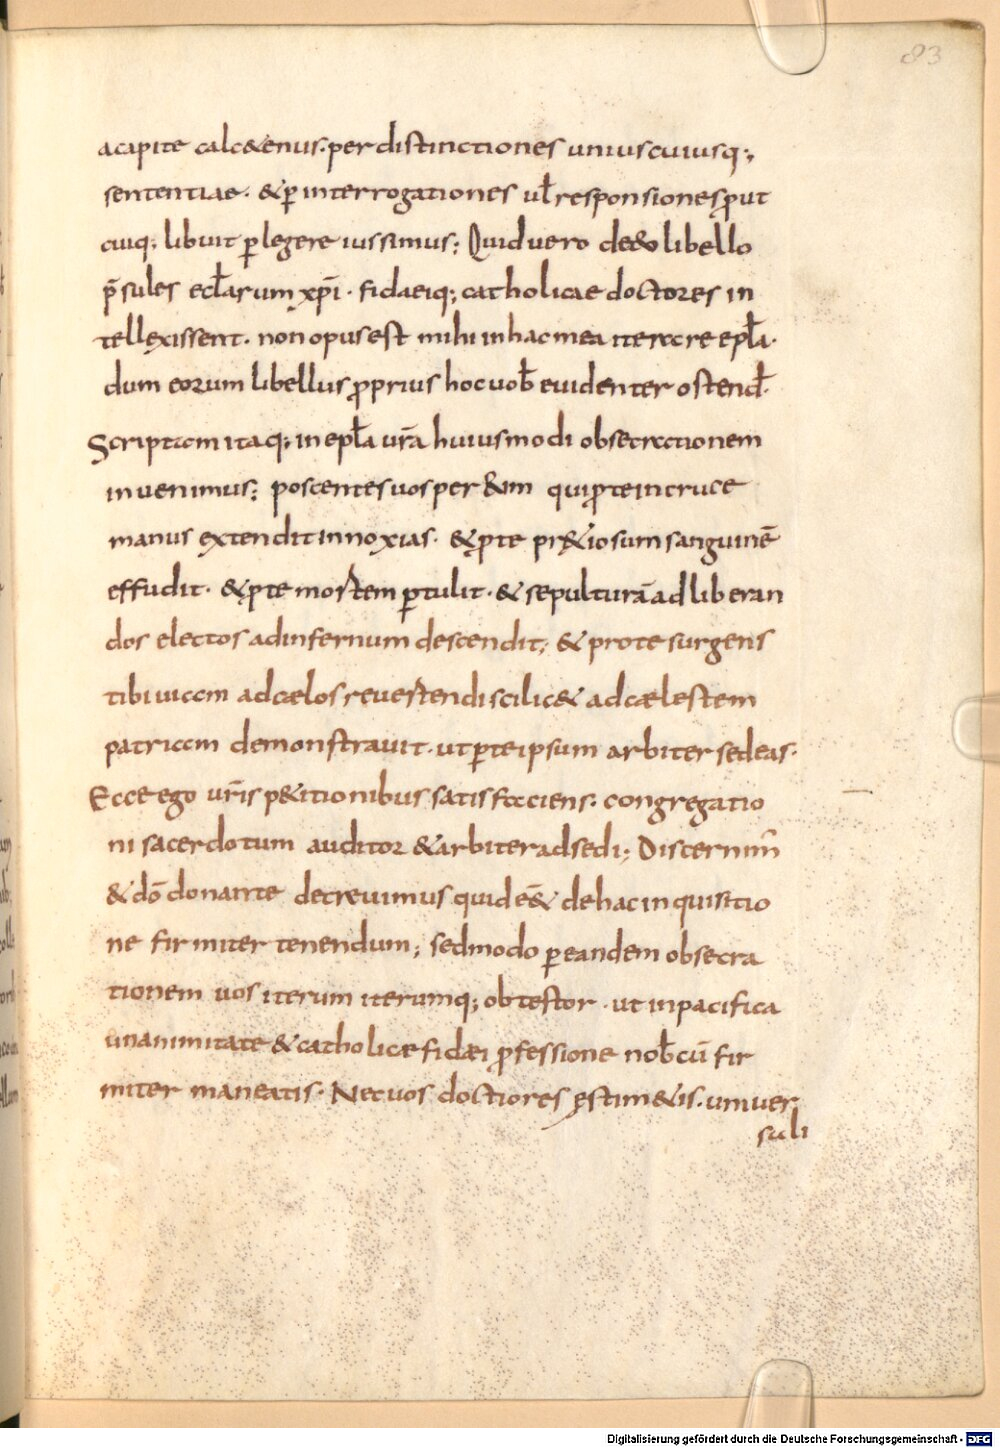 83
acapite calc&enus. per distinctiones uniuscuiusq;,
sententiae. & ꝑ interrogationes ul̄ responsiones ꝓut
cuiq; libuit ꝑlegere iussimus; Quid uero de&o libello
p̄sules eccl̄arum xp̄i. fidaeiq; catholicae doctores in
tellexissent. non opus est mihi in hac mea iterare epl̄a.
dum eorum libellus ꝓprius hoc uob̄ euidenter ostend̄.
Scriptam itaq; in epl̄a ur̄a huiusmodi obsecrationem
inuenimus; poscentes uos per &um qui ꝓ te in cruce
manus extendit innoxias. & ꝓ te pr&iosum sanguinē
effudit. & ꝓ te mortem ꝑtulit. & sepulturā ad liberan
dos electos ad infernum descendit; & pro te surgens
tibi uiam ad caelos reuertendi scilic& ad caelestem
patriam demonstrauit. ut ꝓ te ipsum arbiter sedeas.
Ecce ego ur̄is p&itionibus satisfaciens. congregatio
ni sacerdotum auditor & arbiter adsedi; Discernim̄
& dō donante decreuimus quid eē& de hac inquisitio
ne firmiter tenendum; sed modo ꝑ eandem obsecra
tionem uos iterum iterumq; obtestor. ut in pacifica
unanimitate & catholicae fidaei ꝓfessione nob̄cū fir
miter maneatis. Nec uos doctiores estim&is. uniuer
sali
Digitalisierung gefördert durch die Deutsche Forschungsgemeinschaft - DFG